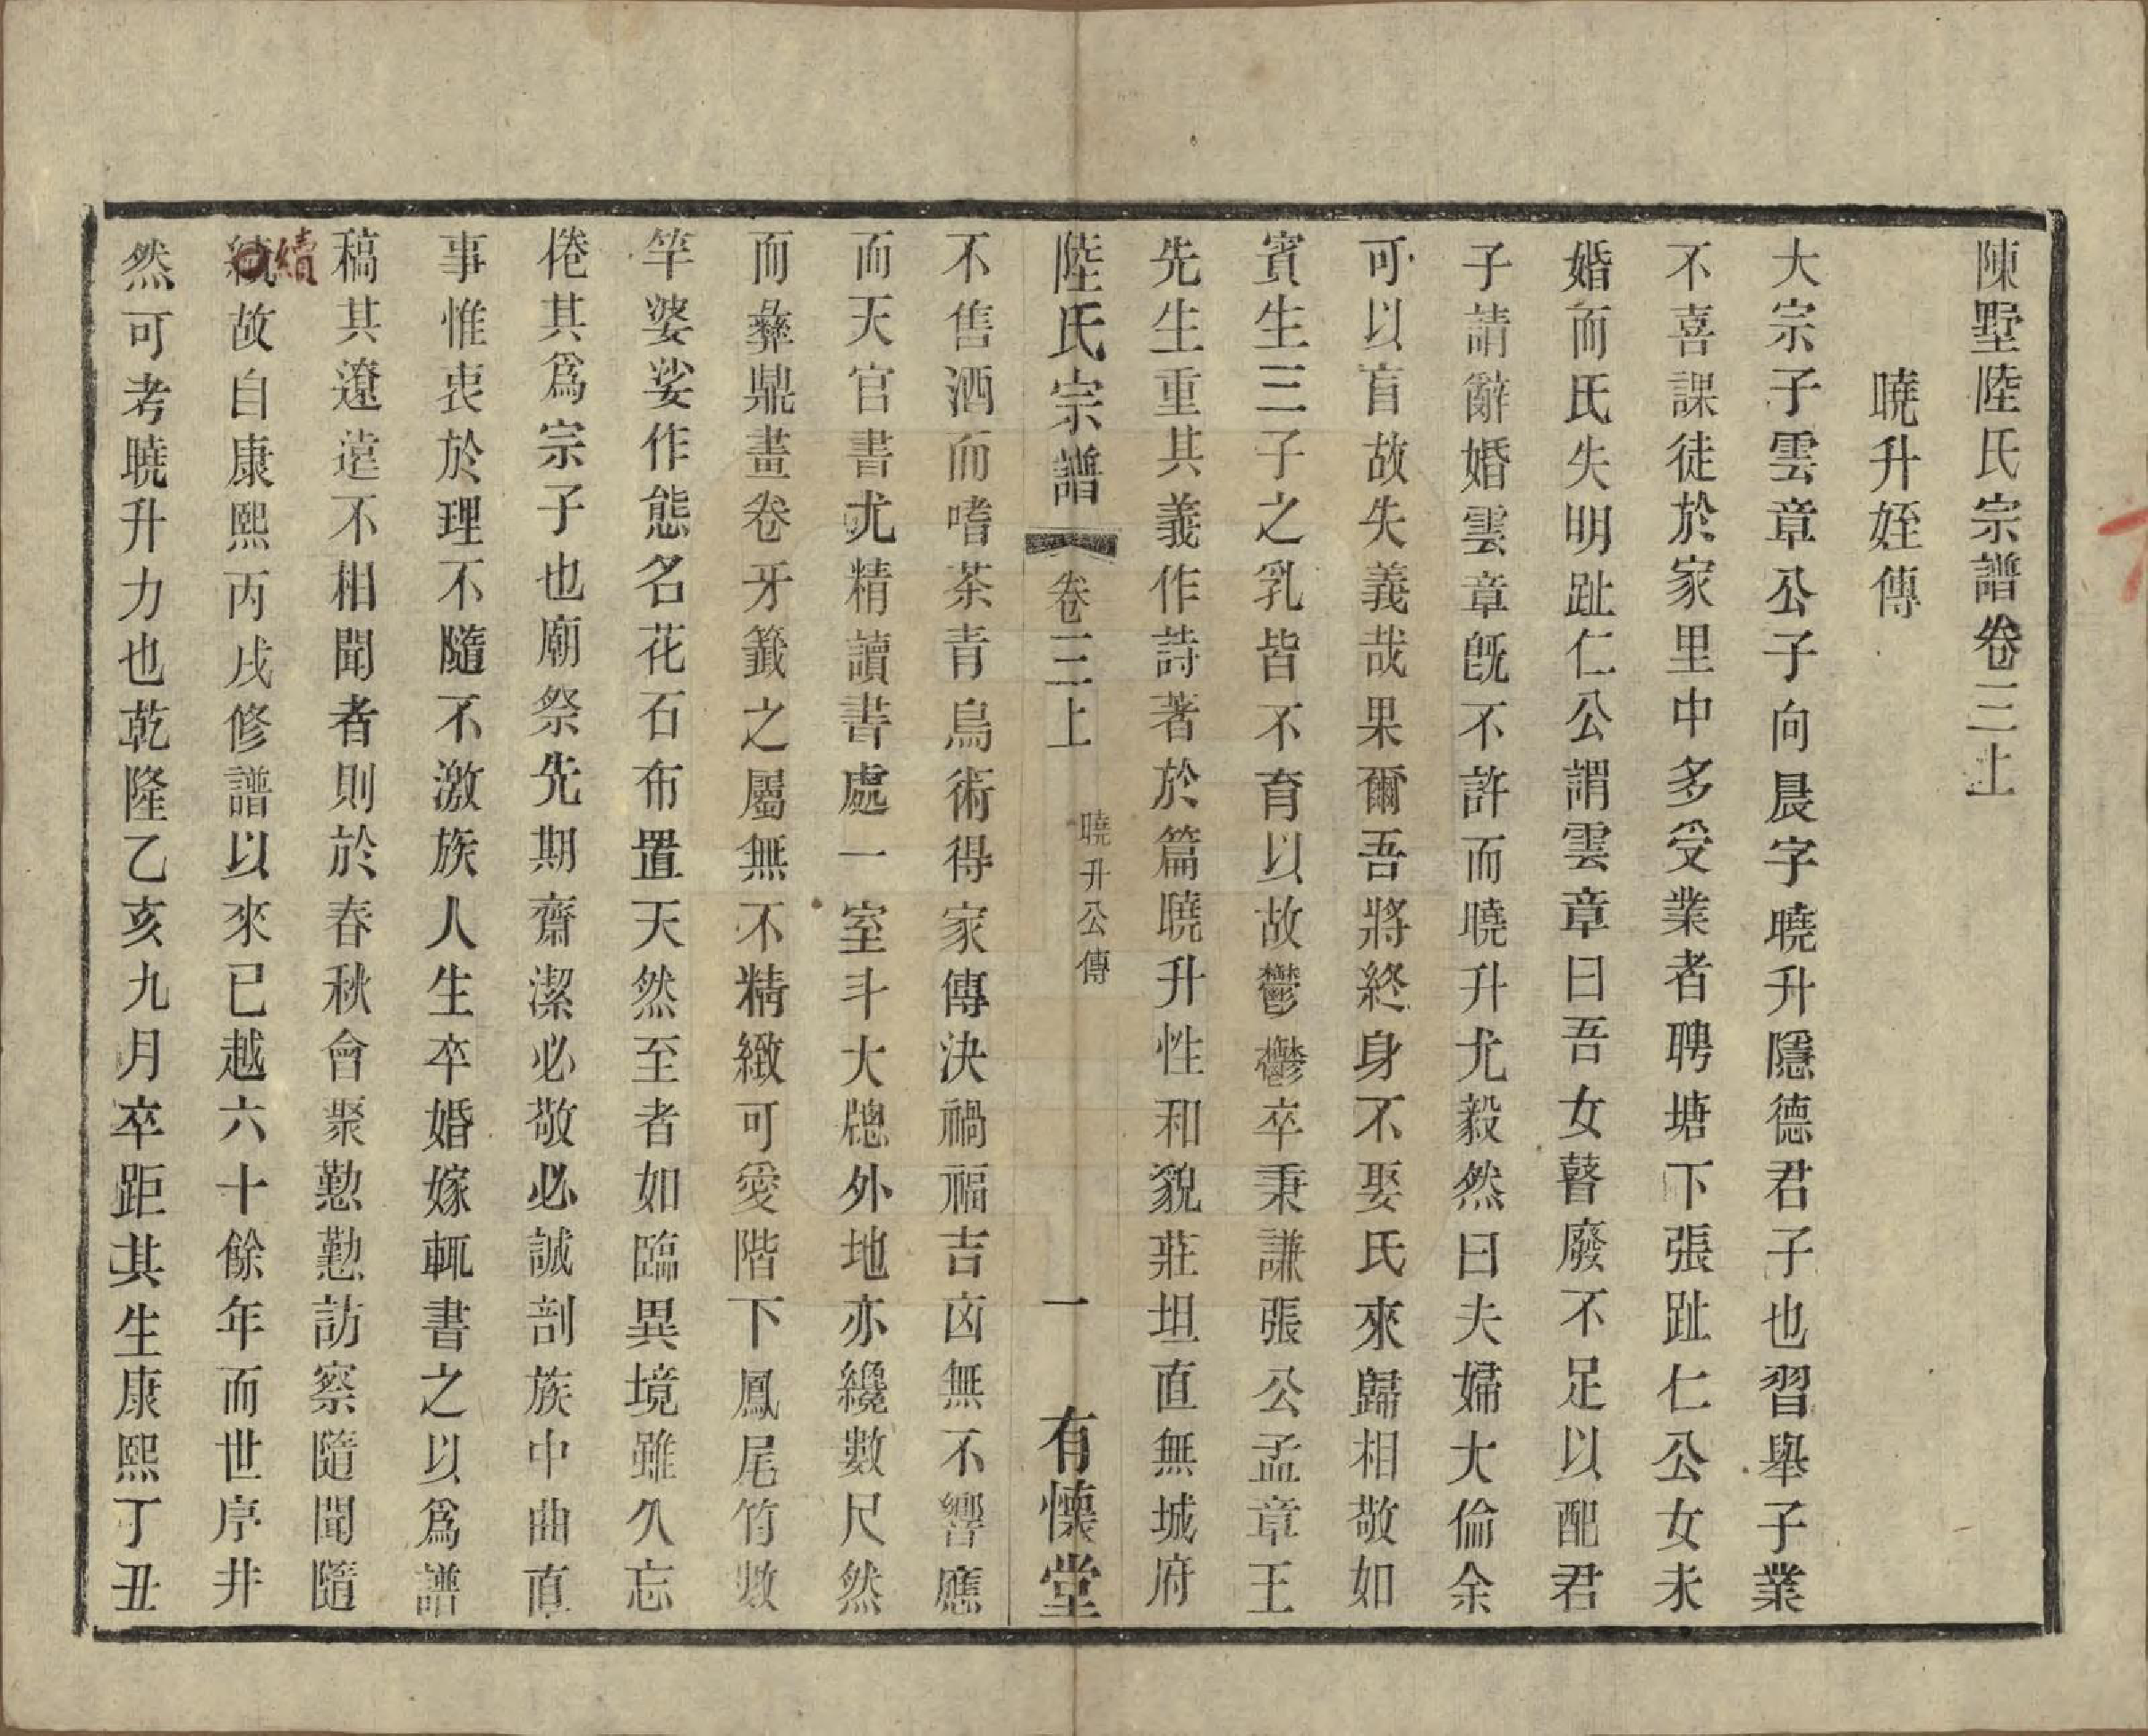 陳墅陸氏宗譜卷三上
曉升姪傳
大宗子雲章公子向晨字曉升隱德君子也習舉子業
不喜課徒於家里中多受業者聘塘下張趾仁公女未
婚而氏失明趾仁公謂雲章曰吾女瞽廢不足以配君
子請辭婚雲章旣不許而曉升尤毅然曰夫婦大倫余
可以盲故失義哉果爾吾將終身不娶氏來歸相敬如
賓生三子之乳皆不育以故鬱鬱卒秉謙張公孟章王
先生重其義作詩著於篇曉升性和貌莊坦直無城府
陸氏宗譜 卷三上 曉升公傳 一 有懷堂
不售酒而嗜茶青烏術得家傳決禍福吉凶無不響應
而天官書尤精讀書處一室斗大牕外地亦纔數尺然
而彝鼎畫卷牙籤之屬無不精緻可愛階下鳳尾竹數
竿婆娑作態名花石布置天然至者如臨異境雖久忘
倦其爲宗子也廟祭先期齋潔必敬必誠剖族中曲直
事惟衷於理不隨不激族人生卒婚嫁輒書之以爲譜
稿其遼遠不相聞者則於春秋會聚懃懃訪察隨聞隨
續故自康熙丙戌修譜以來已越六十餘年而世序井
然可考曉升力也乾隆乙亥九月卒距其生康熙丁丑
續